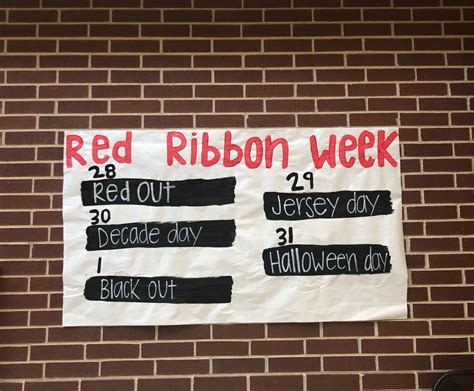 Red Ribbon Week
28
Red Out
29
Jersey day
30
Decade day
31
Halloween day
1
Black out